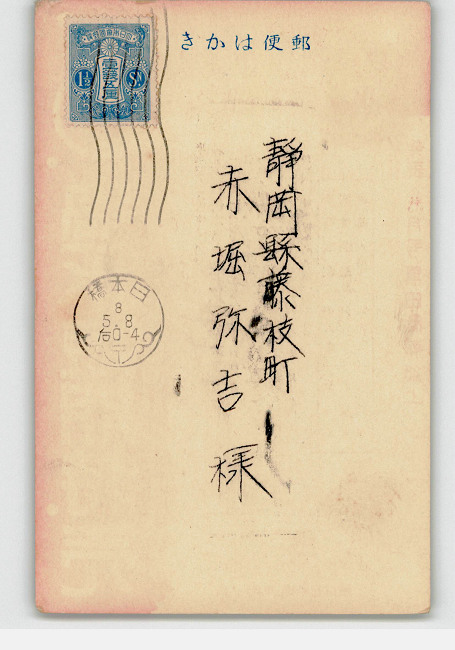 郵便はかき
静岡縣藤枝町
赤堀弥吉様
壹錢五厘
1½ Sn
日本橋
8
5.8
后0-4